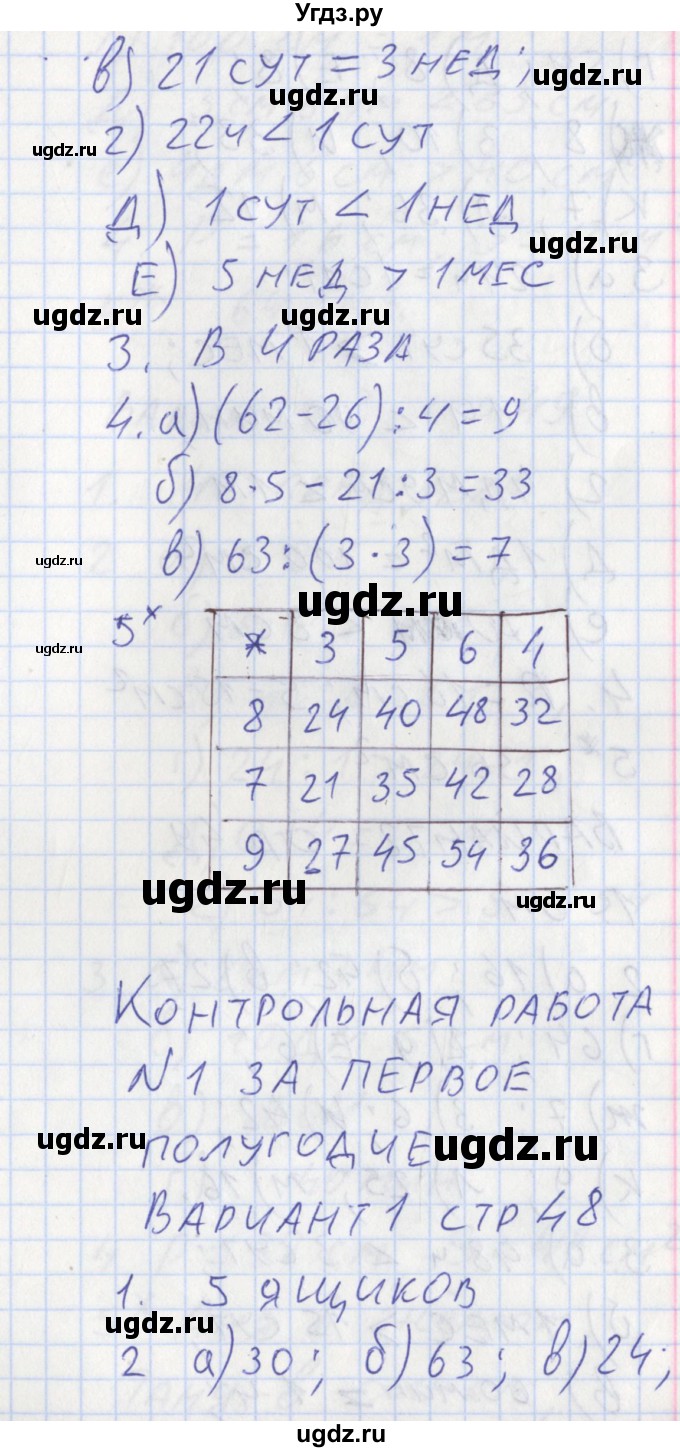 Угдз.ру
в) 21 сут = 3 нед;
ugdz.ru ugdz.ru
ugdz.ru г) 22ч < 1 сут
Д) 1 сут < 1 нед
ugdz.ru
Е) 5 нед > 1 мес
ugdz.ru ugdz.ru
3. В 4 РАЗА
4. а) (62-26):4=9
б) 8·5-21:3=33
ugdz.ru
в) 63:(3·3)=7
ugdz.ru
5* * 3 5 6 4
ugdz.ru
8 24 40 48 32
7 21 35 42 28
9 27 45 54 36
ugdz.ru ugdz.ru
КОНТРОЛЬНАЯ РАБОТА
N1 ЗА ПЕРВОЕ
ugdz.ru ugdz.ru
ПОЛУГОДИЕ
ВАРИАНТ 1 СТР 48
1. 5 ЯЩИКОВ
ugdz.ru
2 а) 30; б) 63; в) 24;
ugdz.ru